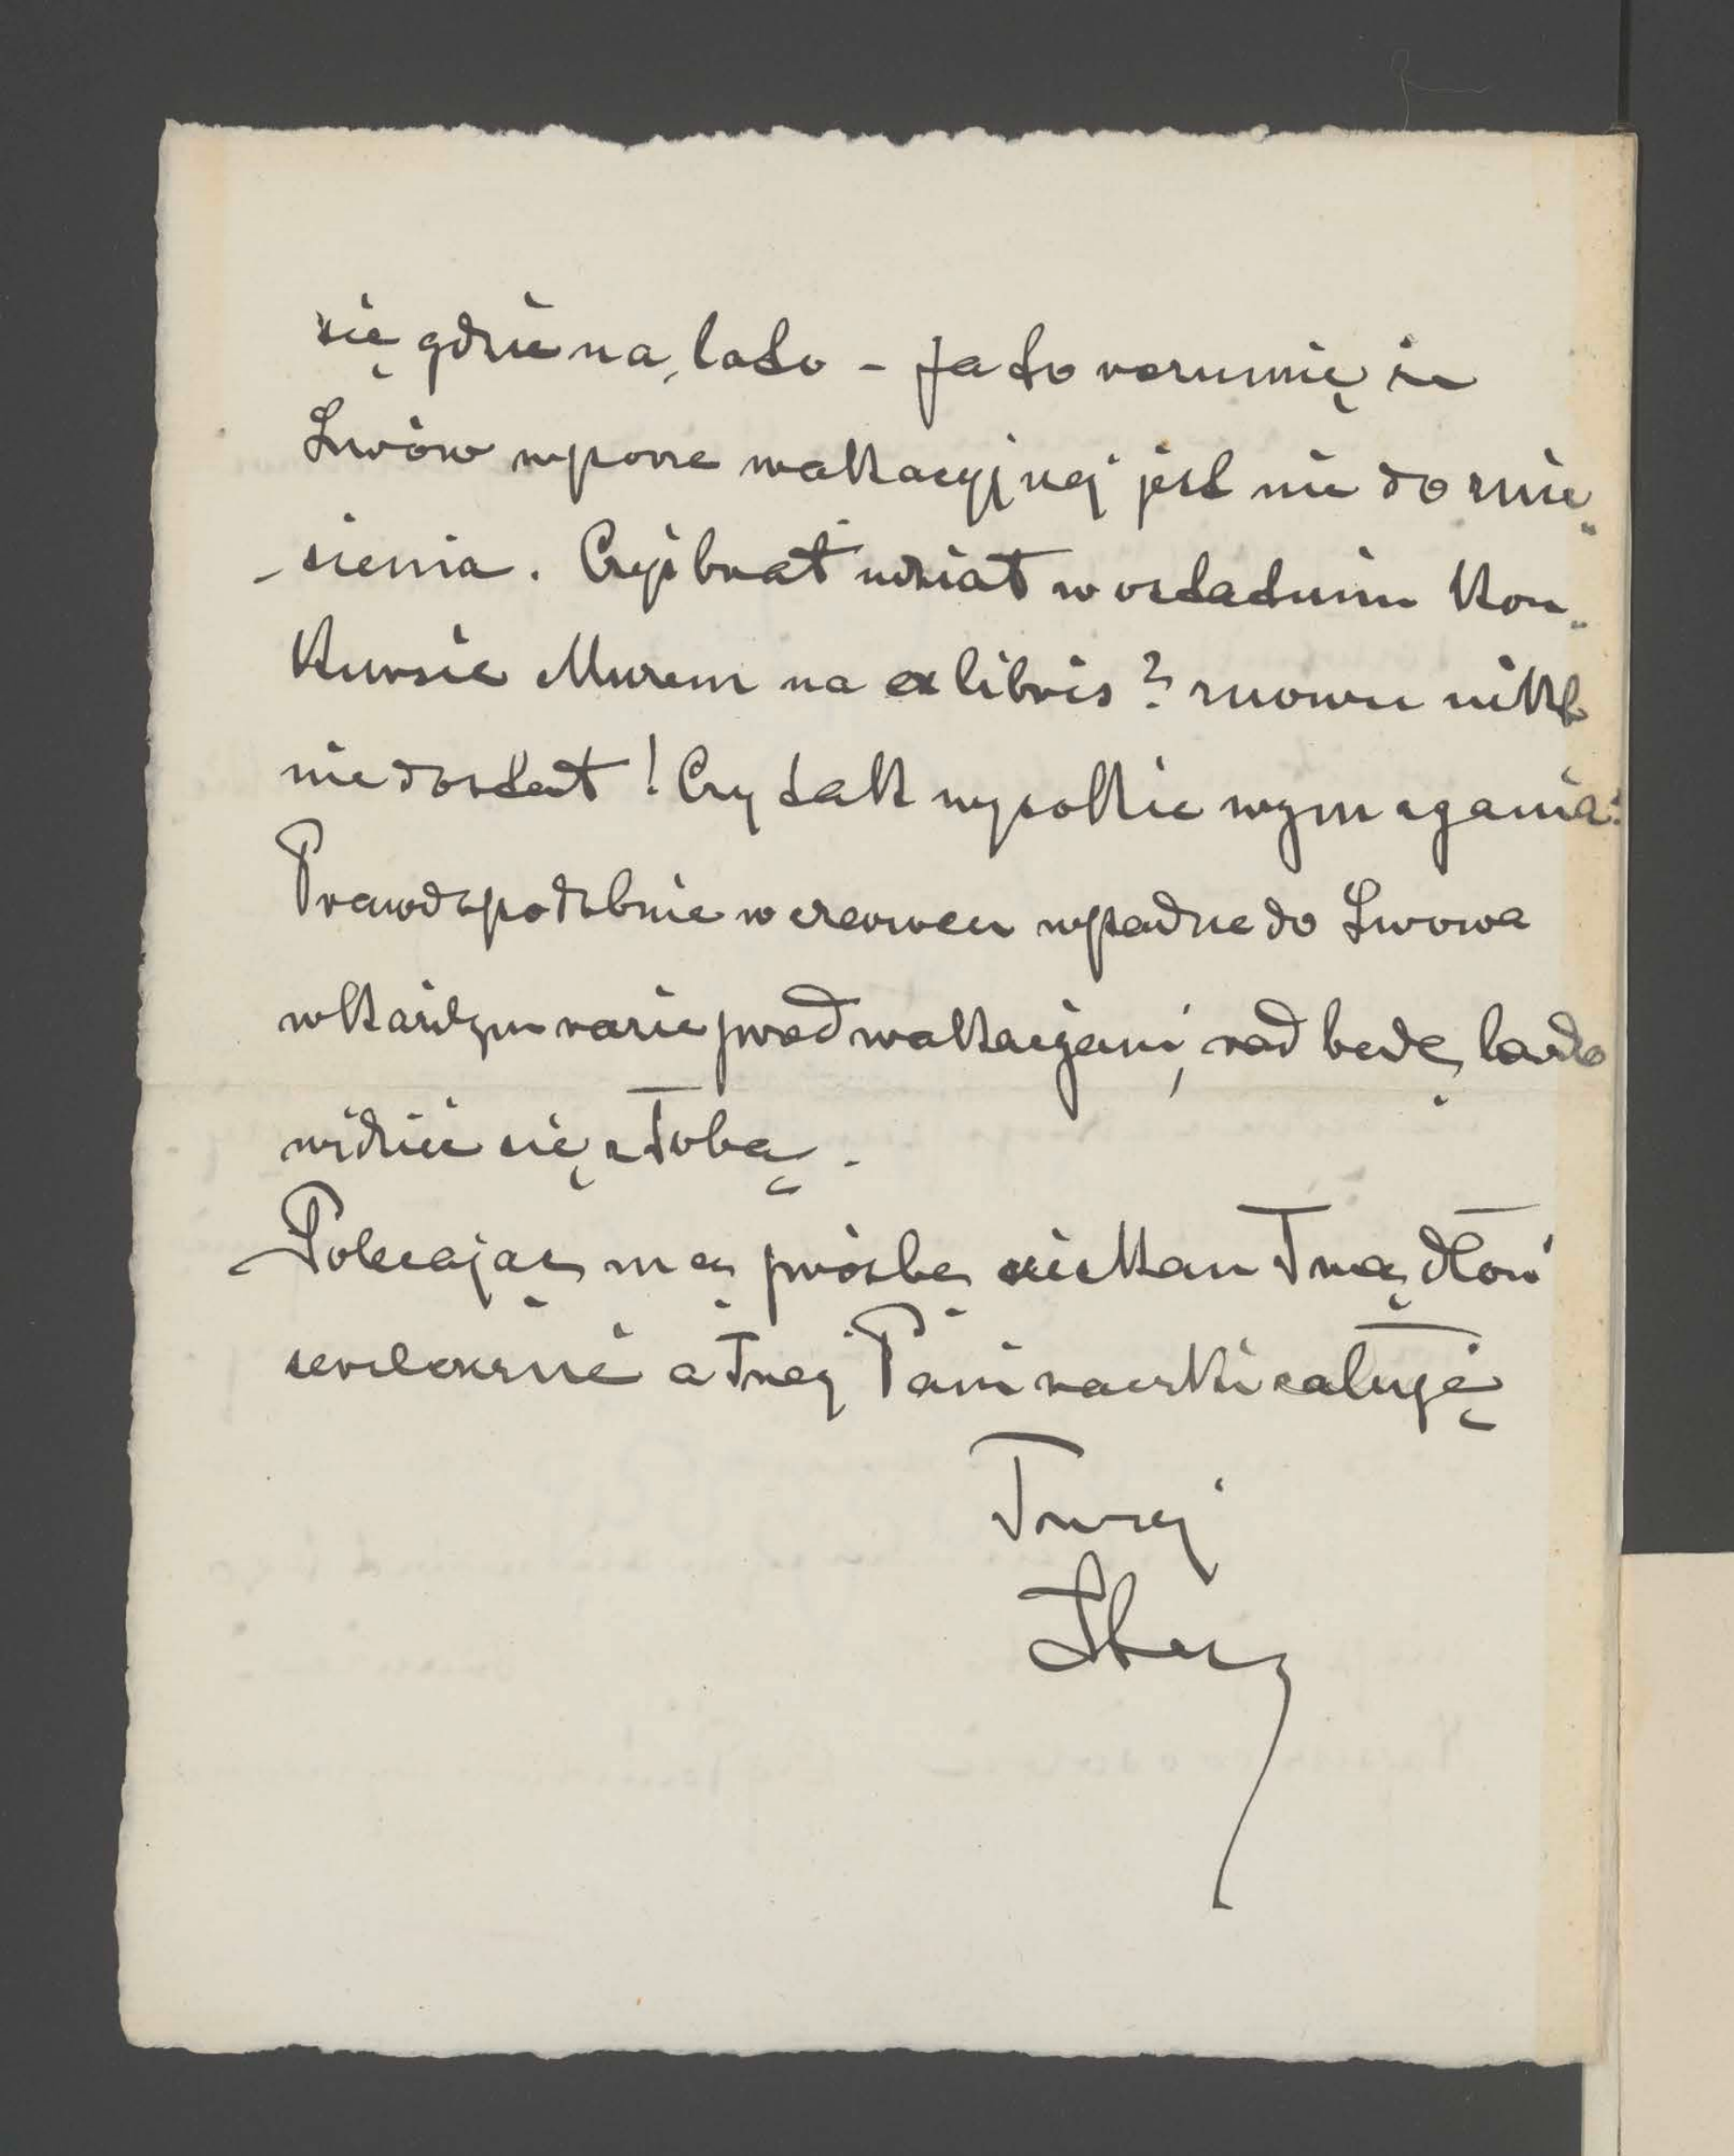 się gdzie na lato – Ja to rozumię że
Lwów w porze wakacyjnej jest nie do znie„
-sienia. Czyś brał udział w ostatnim kon„
kursie Muzeum na ex libris? znowu nikt
nie dostał! Czy tak wysokie wymagania?
Prawdopodobnie w czerwcu wpadnę do Lwowa
w każdym razie przed wakacjami, rad będę bardzo
widzieć się z Tobą.
Polecając mą prośbę ściskam Twą dłoń
serdecznie a Twej Pani rączki całuję
Twój